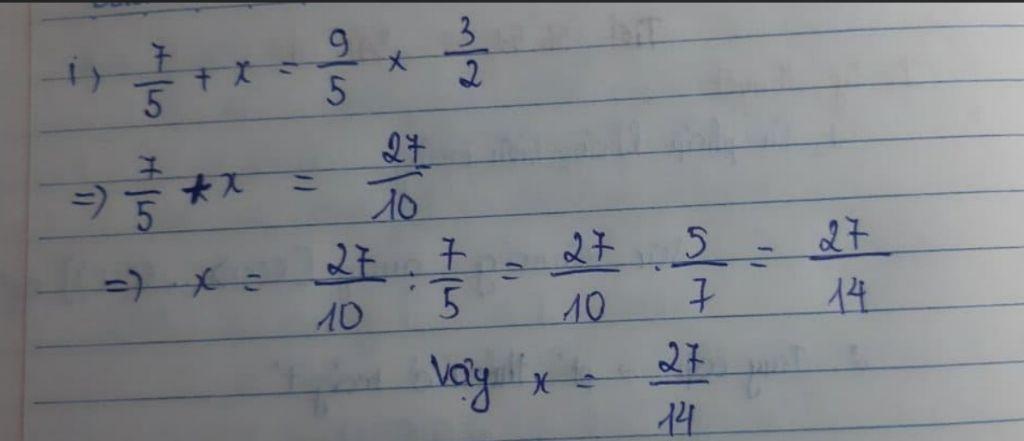 i) 7/5 + x = 9/5 × 3/2
=> 7/5 * x = 27/10
=> x = 27/10 : 7/5 = 27/10 . 5/7 = 27/14
Vậy x = 27/14